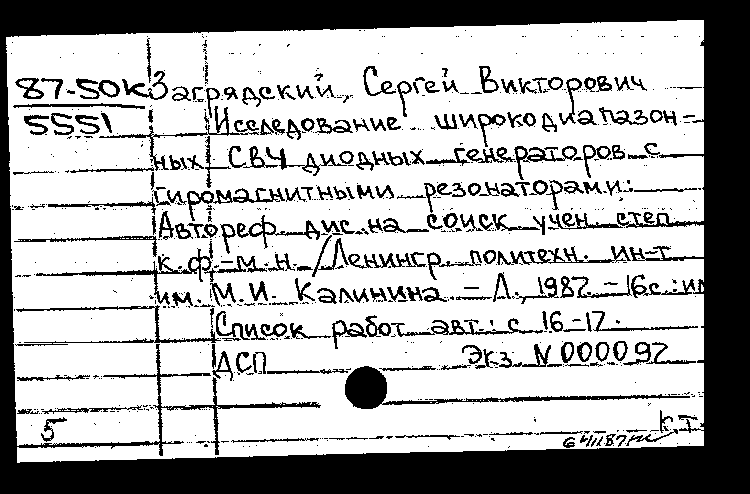 87-50К Загрядский, Сергей Викторович
5551 Исследование широкодиапазон-
ных СВЧ диодных генераторов с
гиромагнитными резонаторами:
Автореф. дис. на соиск. учен. степ.
к.ф.-м.н. / Ленингр. политехн. ин-т
им. М.И. Калинина. - Л., 1987. - 16с.: ил
Список работ авт.: с 16-17.
ДСП Экз. N 000097
5 К.Т.